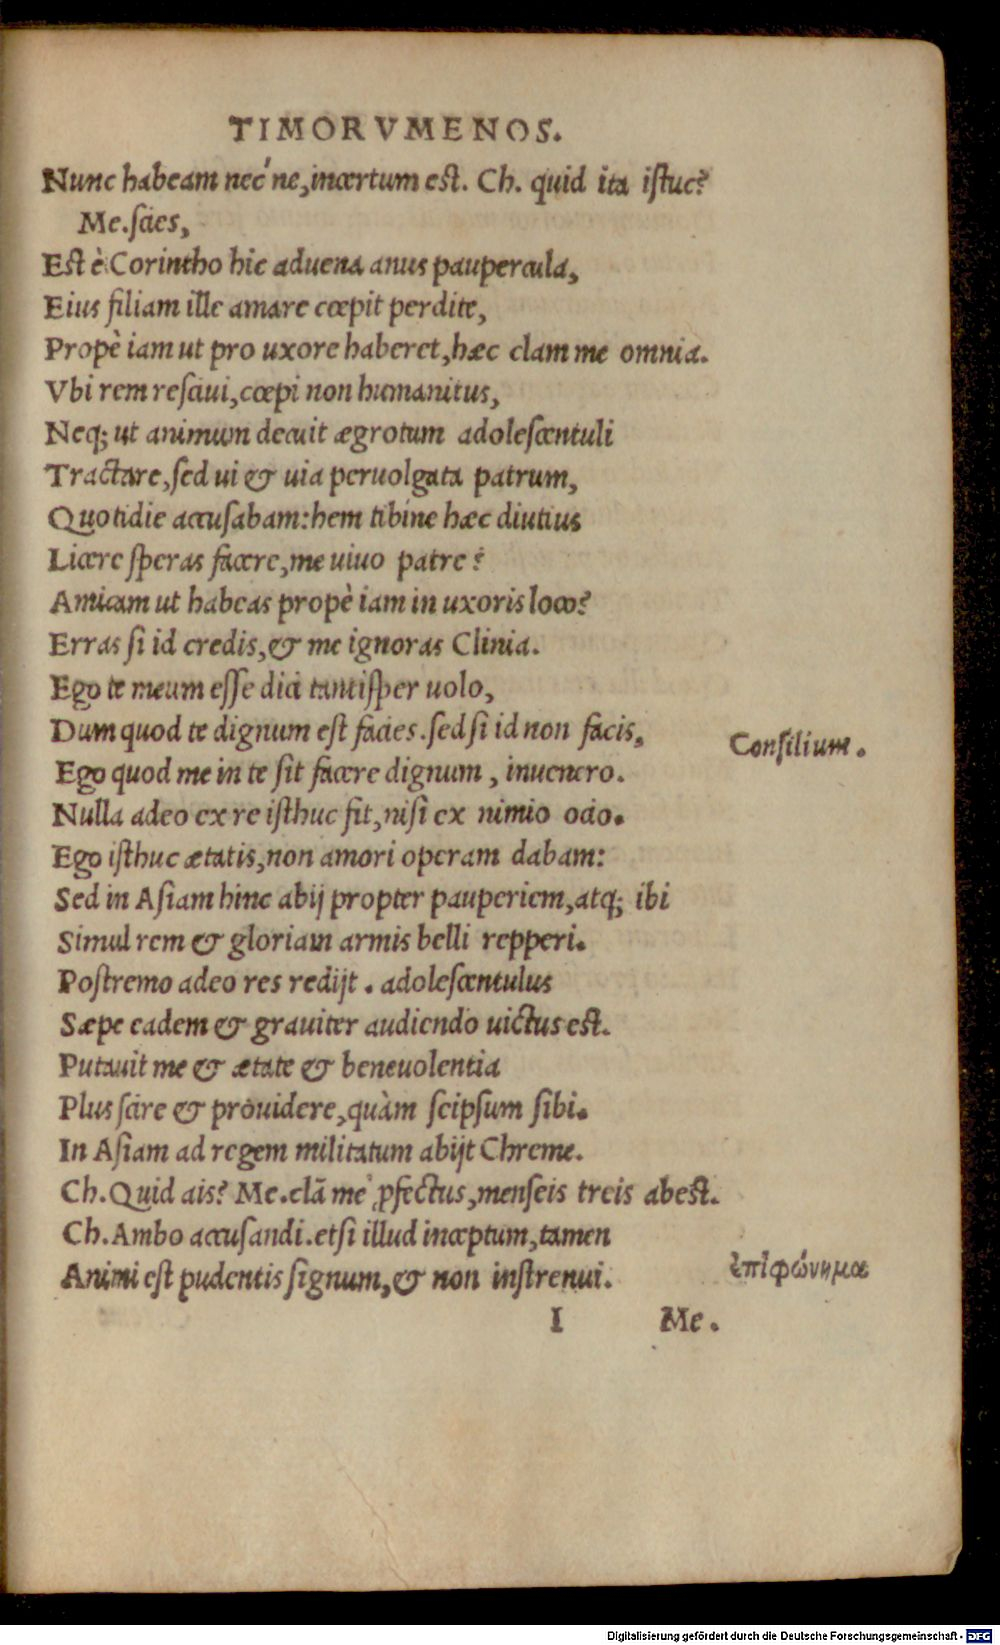 TIMORVMENOS.
Nunc habeam nec'ne, incertum est. Ch. quid ita istuc?
Me. scies,
Est è Corintho hic aduena anus paupercula,
Eius filiam ille amare cœpit perdite,
Propè iam ut pro uxore haberet, hæc clam me omnia.
Vbi rem resciui, cœpi non humanitus,
Neq; ut animum decuit ægrotum adolescentuli
Tractare, sed ui & uia peruolgata patrum,
Quotidie accusabam: hem tibine hæc diutius
Licere speras facere, me uiuo patre?
Amicam ut habeas propè iam in uxoris loco?
Erras si id credis, & me ignoras Clinia.
Ego te meum esse dici tantisper uolo,
Dum quod te dignum est facies. sed si id non facis,
Consilium.
Ego quod me in te sit facere dignum, inuenero.
Nulla adeo ex re isthuc fit, nisi ex nimio ocio.
Ego isthuc ætatis, non amori operam dabam:
Sed in Asiam hinc abij propter pauperiem, atq; ibi
Simul rem & gloriam armis belli repperi.
Postremo adeo res redijt. adolescentulus
Sæpe eadem & grauiter audiendo uictus est.
Putauit me & ætate & beneuolentia
Plus scire & prouidere, quàm seipsum sibi.
In Asiam ad regem militatum abijt Chreme.
Ch. Quid ais? Me. clã me ꝓfectus, menseis treis abest.
Ch. Ambo accusandi. etsi illud inceptum, tamen
Animi est pudentis signum, & non instrenui.
ἐπιφώνημα
I Me.
Digitalisierung gefördert durch die Deutsche Forschungsgemeinschaft - DFG